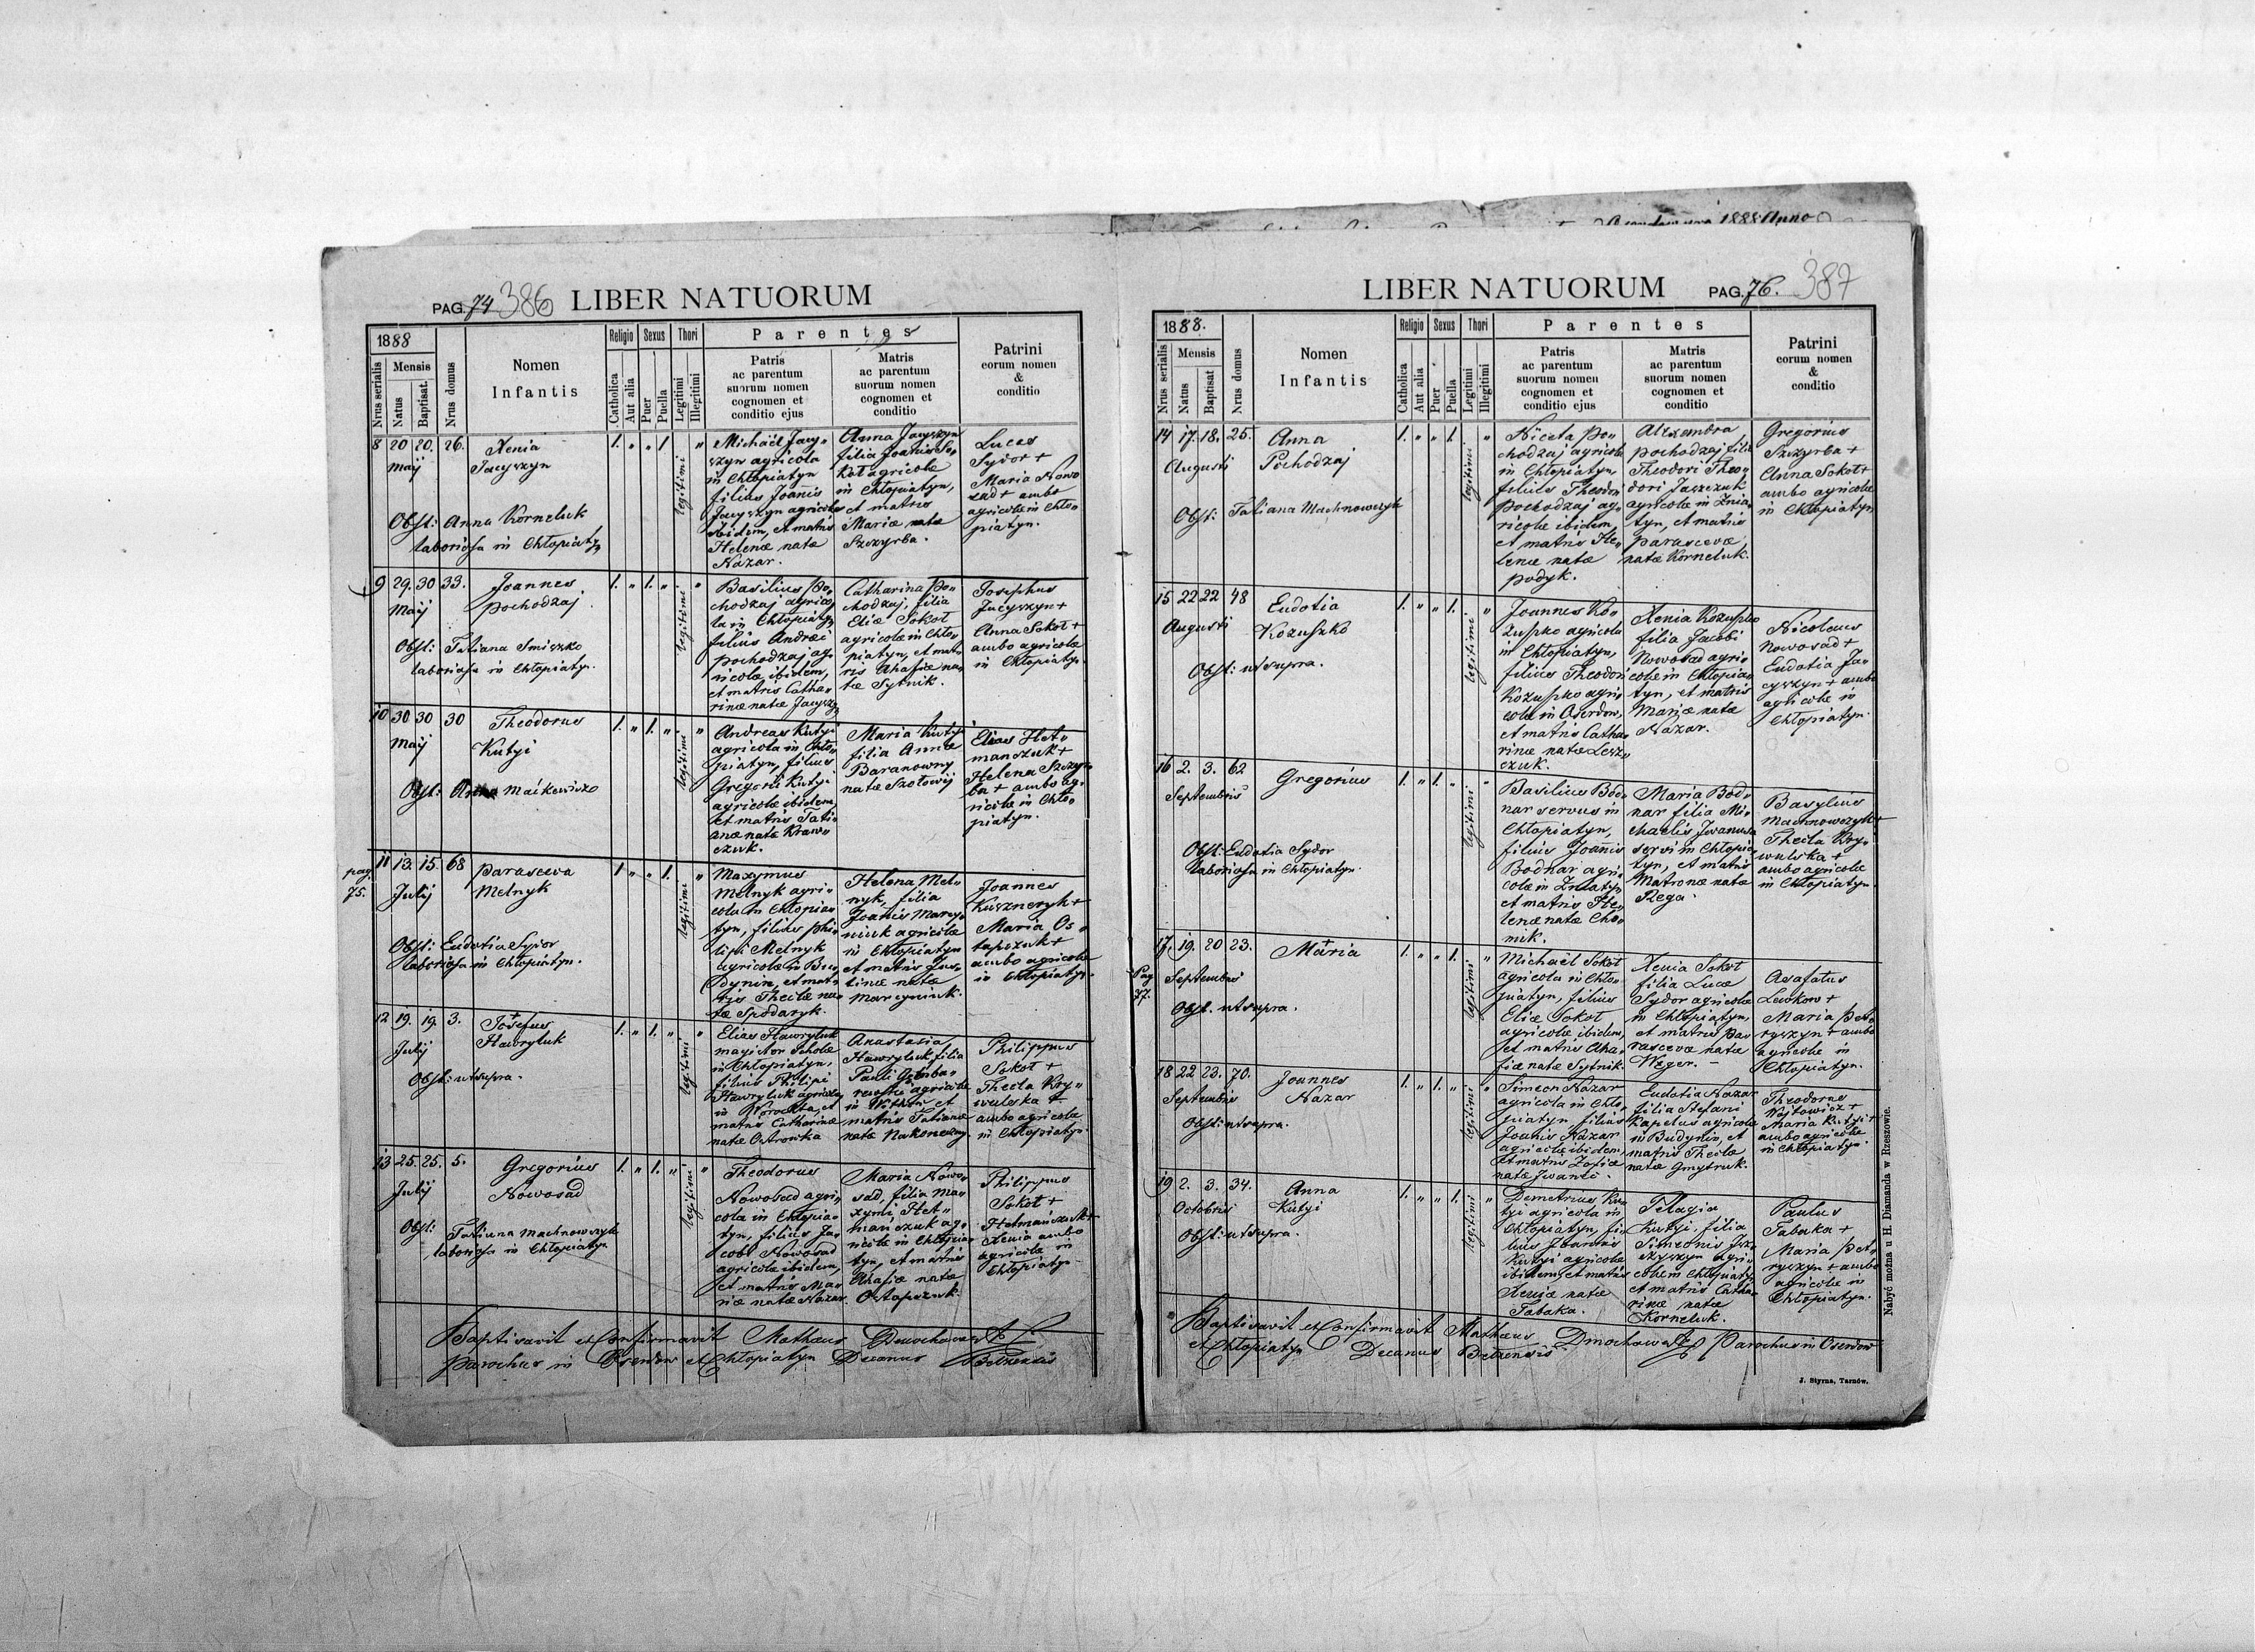 PAG. 74 386 LIBER NATUORUM
1888
Nrus serialis
Mensis
Natus
Baptisat.
Nrus domus
Nomen
Infantis
Religio
Catholica
Aut alia
Sexus
Puer
Puella
Thori
Legitimi
Illegitimi
Parentes
Patris
ac parentum
suorum nomen
cognomen et
conditio ejus
Matris
ac parentum
suorum nomen
cognomen et
conditio
Patrini
eorum nomen
&
conditio
8 20 20. 26.
Maij
Xenia
Jacyszyn
Obst: Anna Korneluk
laboriosa in Chłopiatyn
1. " " 1.
legitimi "
Michaël Jacy„
szyn agricola
in Chłopiatyn
filius Joannis
Jacyszyn agricolæ
ibidem, et matris
Helenæ natæ
Nazar.
Anna Jacyszyn
filia Joannis So„
koł agricolæ
in Chłopiatyn,
et matris
Mariæ natæ
Szczyrba.
Lucas
Sydor +
Maria Nowo
sad + ambo
agricolæ in Chło„
piatyn.
9 29. 30 33.
Maij
Joannes
Pochodzaj
Obst: Tatiana Smiszko
laboriosa in Chłopiatyn.
1. " 1. "
legitimi "
Basilius Po„
chodzaj agrico„
la in Chłopiatyn
filius Andreæ
Pochodzaj ag„
ricolæ ibidem,
et matris Catha„
rinæ natæ Jacyszyn
Catharina Po„
chodzaj, filia
Eliæ Sokoł
agricolæ in Chło„
piatyn, et mat„
ris Ahafiæ na„
tæ Sytnik.
Josephus
Jacyszyn +
Anna Sokoł +
ambo agricolæ
in Chłopiatyn.
10 30 30 30
Maij
Theodorus
Kutyi
Obst: Maćkewicz
1. " 1. "
legitimi "
Andreas Kutyi
agricola in Chło„
piatyn, filius
Gregorii Kutyi
agricolæ ibidem,
et matris Tati„
anæ natæ Kraw„
czuk.
Maria Kutyi
filia Annæ
Baranowny
natæ Szołowij
Elias Het„
manczuk +
Helena Szczyr„
ba + ambo ag„
ricolæ in Chło„
piatyn.
pag.
75.
11 13. 15. 68
Julij
Parasceva
Melnyk
Obst: Eudotia Sydor
laboriosa in Chłopiatyn.
1 " " 1.
legitimi "
Maxymus
Melnyk agri„
cola in Chłopia„
tyn, filius Phi„
lipi Melnyk
agricolæ in Bu„
dynin, et mat„
ris Theclæ na„
tæ Spodaryk.
Helena Mel„
nyk, filia
Joannis Marcy„
niuk agricolæ
in Chłopiatyn
et matris Jus„
tinæ natæ
Marcyniuk.
Joannes
Kuszneryk +
Maria Os„
tapczuk +
ambo agricolæ
in Chłopiatyn.
12 19. 19. 3.
Julij
+
Josefus
Hawryluk
Obst: ut supra.
1. " 1. "
legitimi "
Elias Hawryluk
magistor scholæ
in Chłopiatyn,
filius Philipi
Hawryluk agricolæ
in Worochta, et
matris Catharinæ
natæ Ostrowka
Anastasia
Hawryluk filia
Pauli
agricolæ
in et
matris Tatianæ
natæ Nakonecznyj.
Philippus
Sokoł +
Thecla Kry„
wulska +
ambo agricolæ
in Chłopiatyn.
13 25. 25. 5.
Julij
Gregorius
Nowosad
Obst: Tatiana Machnowczyk
laboriosa in Chłopiatyn
1. " 1. "
legitimi "
Theodorus
Nowosad agri„
cola in Chłopia„
tyn, filius Ja„
cobi Nowosad
agricolæ ibidem,
et matris Ma„
riæ natæ Nazar.
Maria Nowo„
sad, filia Ma„
xymi Het„
mańczuk ag„
ricolæ in Chłopia„
tyn, et matris
Ahafiæ natæ
Ostapczuk.
Philippus
Sokoł +
Hetmańczuk +
Xenia ambo
agricolæ in
Chłopiatyn.
Baptisavit et Confirmavit Mathæus Dmochowski
Parochus in Oserdow et Chłopiatyn Decanus Belzensis
LIBER NATUORUM PAG. 76. 387
1888.
Nrus serialis
Mensis
Natus
Baptisat
Nrus domus
Nomen
Infantis
Religio
Catholica
Aut alia
Sexus
Puer
Puella
Thori
Legitimi
Illegitimi
Parentes
Patris
ac parentum
suorum nomen
cognomen et
conditio ejus
Matris
ac parentum
suorum nomen
cognomen et
conditio
Patrini
eorum nomen
&
conditio
14 17. 18. 25.
Augusti
Anna
Pochodzaj
Obst: Tatiana Machnowczyk
1. " " 1.
legitimi "
Niceta Po„
chodzaj agricola
in Chłopiatyn,
filius Theodori
Pochodzaj ag„
ricolæ ibidem,
et matris He„
lenæ natæ
Podyk.
Alexandra
Pochodzaj filia
Theodori Theo„
dori Jaszczuk
agricolæ in Żnia„
tyn, et matris
Parascevæ,
natæ Korneluk.
Gregorius
Szczyrba +
Anna Sokoł +
ambo agricolæ
in Chłopiatyn
15 22 22 48
Augusti
Eudotia
Kozuszko
Obst: ut supra.
1. " " 1.
legitimi "
Joannes Ko„
zuszko agricola
in Chłopiatyn,
filius Theodori
Kozuszko agri„
colæ in Oserdow,
et matris Catha„
rinæ natæ Lesz„
czuk.
Xenia Kozuszko
filia Jacobi
Nowosad agri„
colæ in Chłopia„
tyn, et matris
Mariæ natæ
Nazar.
Nicolaus
Nowosad +
Eudotia Ja„
cyszyn + ambo
agricolæ in
Chłopiatyn.
16 2. 3. 62
Septembris
Gregorius
Obst: Eudotia Sydor
laboriosa in Chłopiatyn.
1. " 1. "
legitimi "
Basilius Bod„
nar servus in
Chłopiatyn,
filius Joannis
Bodnar agri„
colæ in Żniatyn
et matris He„
lenæ natæ Cho„
mik.
Maria Bod„
nar filia Mi„
chaelis Iwanusa
servi in Chłopia„
tyn, et matris
Matronæ natæ
Rega.
Basylius
Machnowczyk +
Thecla Kry„
wulska +
ambo agricolæ
in Chłopiatyn.
Pag
77.
17. 19. 20 23.
Septembris
+
Maria
Obst. ut supra.
1. " " 1.
legitimi "
Michaël Sokoł
agricola in Chło„
piatyn, filius
Eliæ Sokoł
agricolæ ibidem,
et matris Aha„
fiæ natæ Sytnik
Xenia Sokoł
filia Lucæ
Sydor agricolæ
in Chłopiatyn,
et matris Pa„
rascevæ natæ
Węger. –
Asafatus
Lewkow +
Maria Pet„
ryszyn + ambo
agricolæ in
Chłopiatyn.
18 22 23. 70.
Septembris
Joannes
Nazar
Obst: ut supra.
1. " 1. "
legitimi "
Simeon Nazar
agricola in Chło„
piatyn filius
Joannis Nazar
agricolæ ibidem,
et matris Zofiæ
natæ Iwanci.
Eudotia Nazar
filia Stefani
Kapelus agricolæ
in Budynin, et
matris Theclæ
natæ Gmytruk.
Theodorus
Wojtowicz +
Maria Kutyi +
ambo agricolæ
in Chłopiatyn.
19 2. 3. 34.
Octobris
Anna
Kutyi
Obst: ut supra.
1. " " 1.
legitimi "
Demetrius Ku„
tyi agricola in
Chłopiatyn, fi„
lius Joannis
Kutyi agricolæ
ibidem, et matris
Xeniæ natæ
Tabaka.
Pelagia
Kutyi, filia
Simeonis
agri„
colæ in Chłopiatyn
et matris Catha„
rinæ natæ
Korneluk.
Paulus
Tabaka +
Maria Pet„
ryszyn + ambo
agricolæ in
Chłopiatyn.
" Baptisavit et Confirmavit Mathæus Dmochowski Parochus in Oserdow
et Chłopiatyn Decanus Belzensis
J. Styrna, Tarnów.
Nabyć można u H. Diamanda w Rzeszowie.